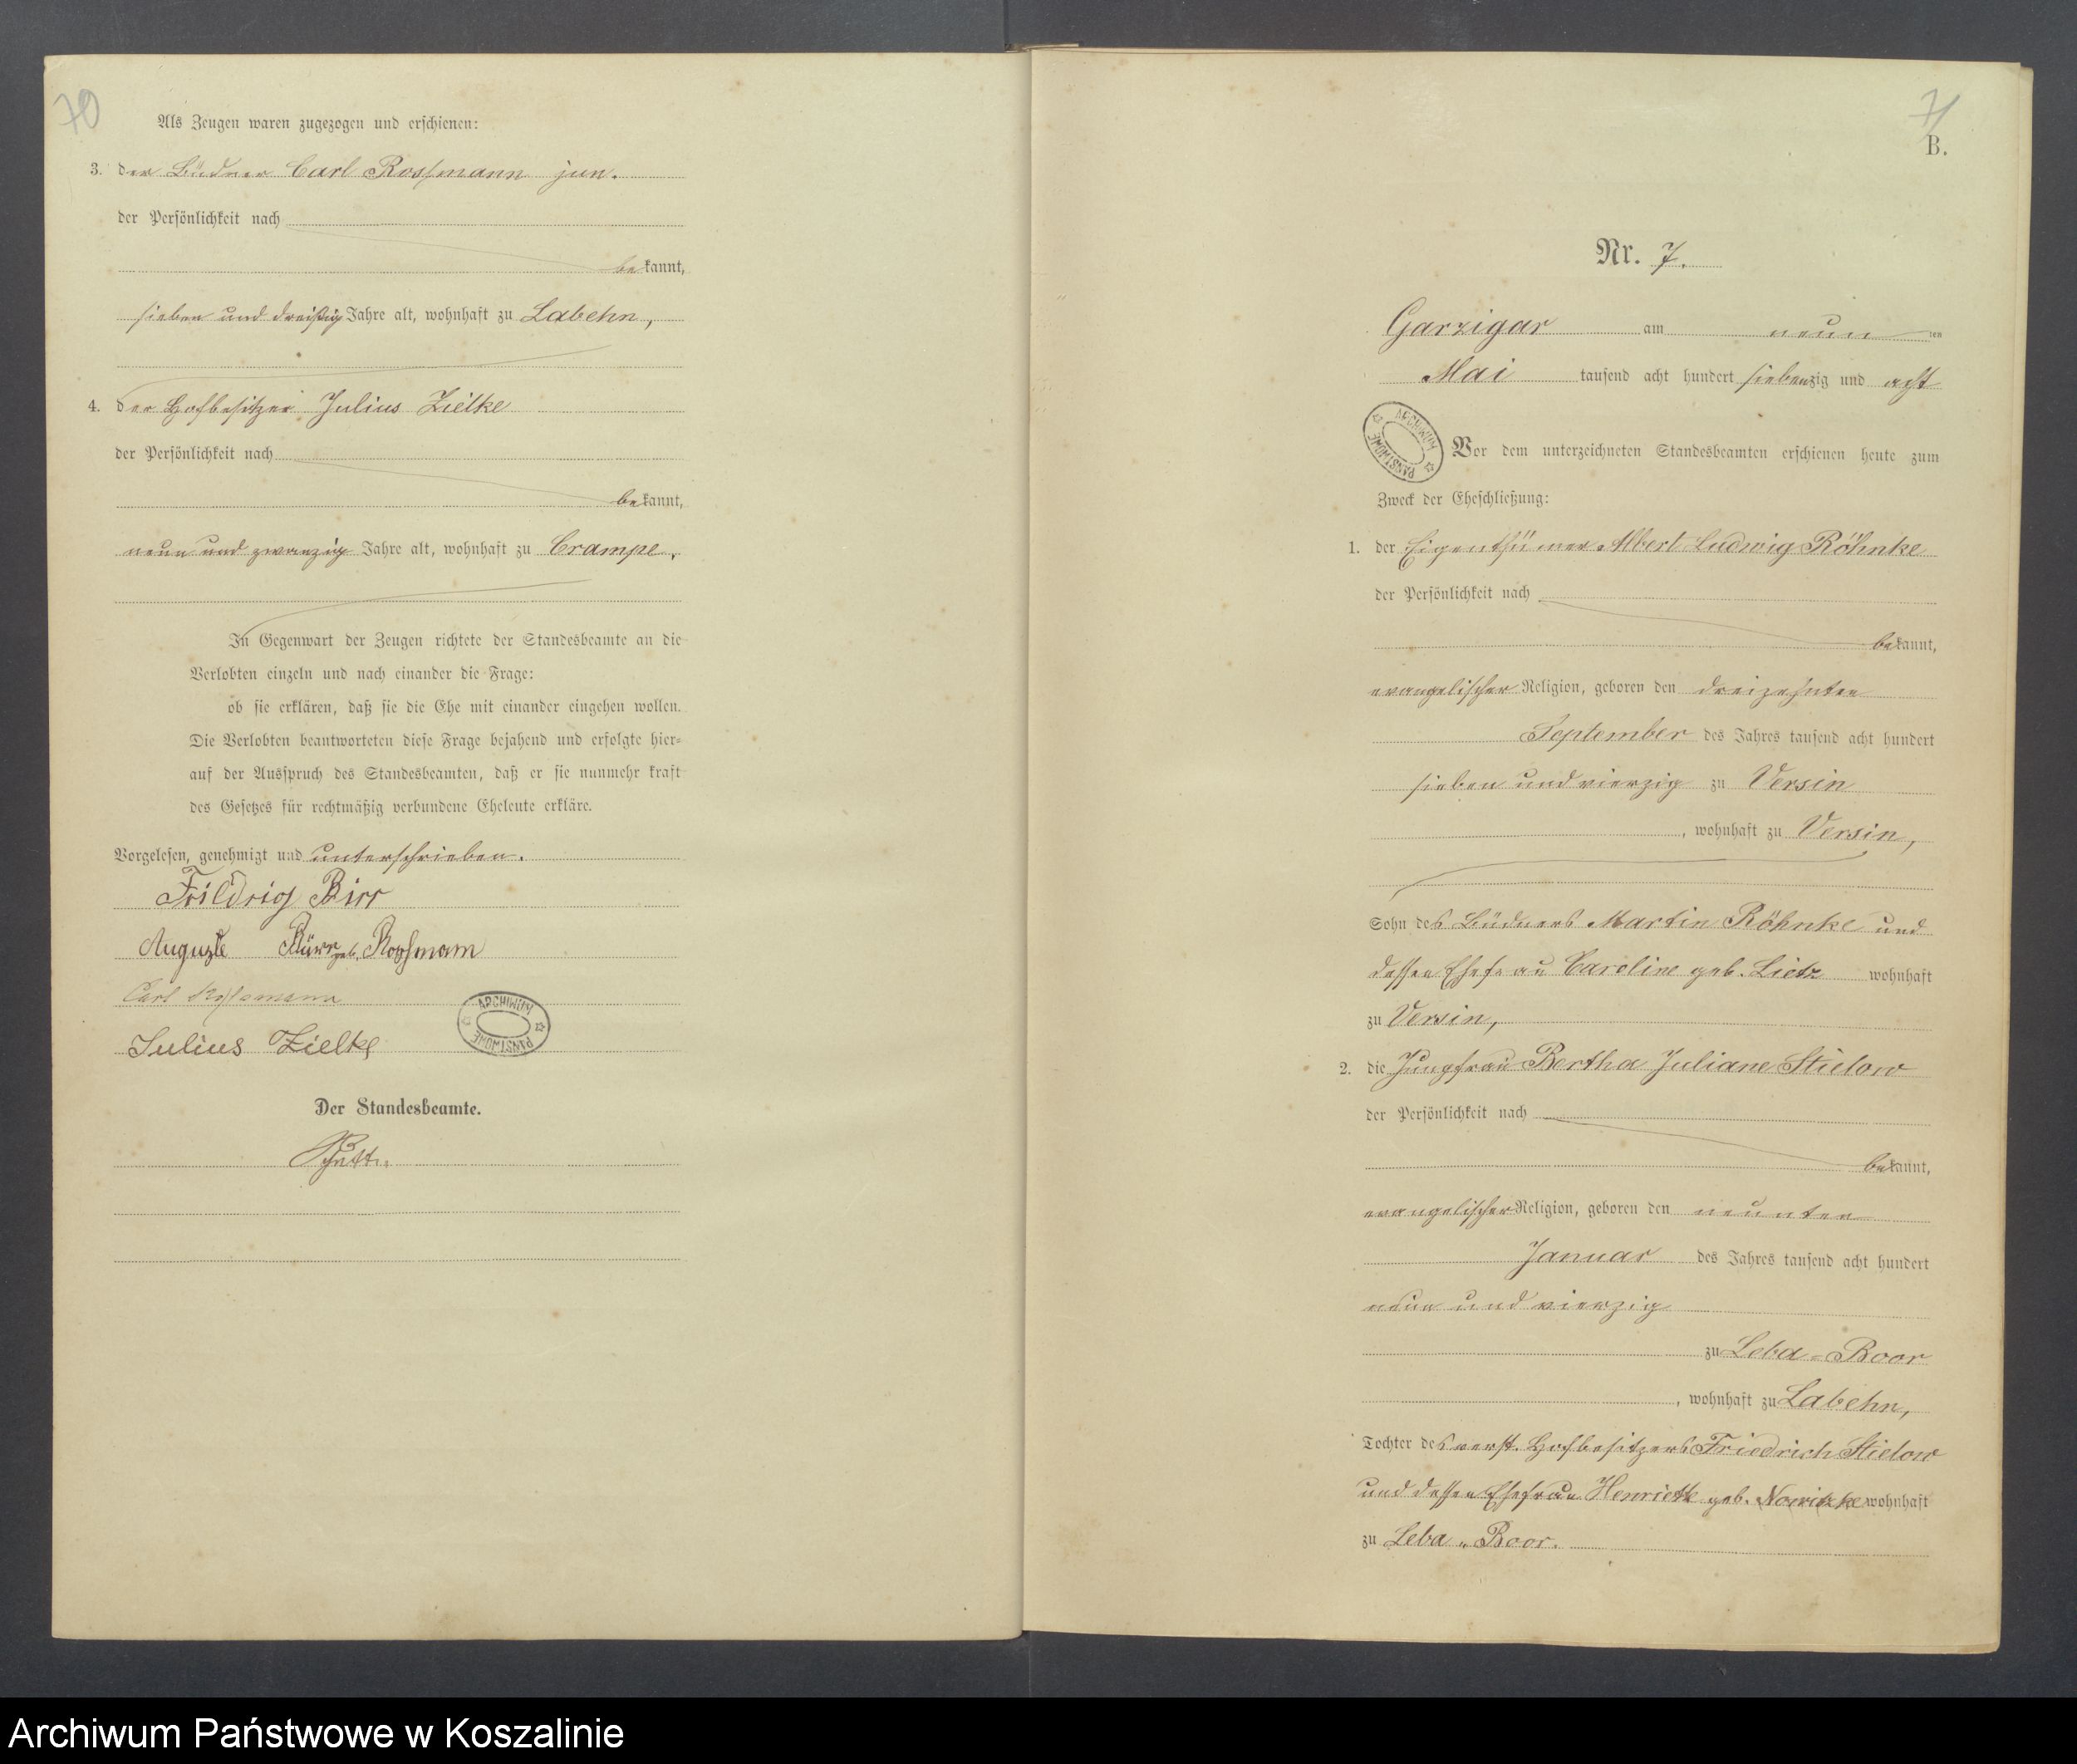 70
Als Zeugen waren zugezogen und erschienen:
3. der Büdner Carl Rossmann jun.
der Persönlichkeit nach
bekannt,
sieben und dreißig Jahre alt, wohnhaft zu Labehn,
4. der Hofbesitzer Julius Zielke
der Persönlichkeit nach
bekannt,
neun und zwanzig Jahre alt, wohnhaft zu Crampe.
In Gegenwart der Zeugen richtete der Standesbeamte an die
Verlobten einzeln und nach einander die Frage:
ob sie erklären, daß sie die Ehe mit einander eingehen wollen.
Die Verlobten beantworteten diese Frage bejahend und erfolgte hier-
auf der Ausspruch des Standesbeamten, daß er sie nunmehr kraft
des Gesetzes für rechtmäßig verbundene Eheleute erkläre.
Vorgelesen, genehmigt und unterschrieben.
Birr
Auguste geb. Rossmann
Carl Rossmann
Julius Zielke
ARCHIWUM PAŃSTWOWE
Der Standesbeamte.
71
B.
Nr. 7.
Garzigar am neun ten
Mai tausend acht hundert siebenzig und acht
ARCHIWUM PAŃSTWOWE
Vor dem unterzeichneten Standesbeamten erschienen heute zum
Zweck der Eheschließung:
1. der Eigenthümer Albert Ludwig Röhnke
der Persönlichkeit nach
bekannt,
evangelischer Religion, geboren den dreizehnten
September des Jahres tausend acht hundert
sieben und vierzig zu Versin
, wohnhaft zu Versin,
Sohn des Büdners Martin Röhnke und
dessen Ehefrau Caroline geb. Lietz wohnhaft
zu Versin,
2. die Jungfrau Bertha Juliane Stielow
der Persönlichkeit nach
bekannt,
evangelischer Religion, geboren den neunten
Januar des Jahres tausend acht hundert
neun und vierzig
zu Leba-Boor
, wohnhaft zu Labehn,
Tochter des verst. Hofbesitzers Friedrich Stielow
und dessen Ehefrau Henriette geb. Nowitzke wohnhaft
zu Leba-Boor.
Archiwum Państwowe w Koszalinie